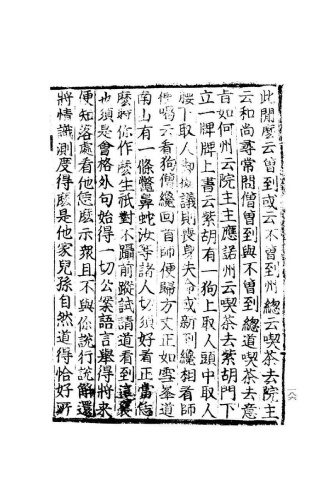 此閒麼云曾到或云不曾到州總云喫茶去院主
云和尚尋常問僧曾到與不曾到總道喫茶去意
旨如何州云院主主應諾州云喫茶去紫胡門下
立一牌牌上書云紫胡有一狗上取人頭中取人
腰下取人脚擬議則喪身失命或新到纔相看師
便喝云看狗僧纔回首師便歸方丈正如雪峯道
南山有一條鼈鼻蛇汝等諸人切須好看正當恁
麽時你作麽生祇對不躡前蹤試請道看到這裏
也須是會格外句始得一切公案語言舉得將來
便知落處看他恁麽示衆且不與你說行說解還
將情識測度得麽是他家兒孫自然道得恰好所